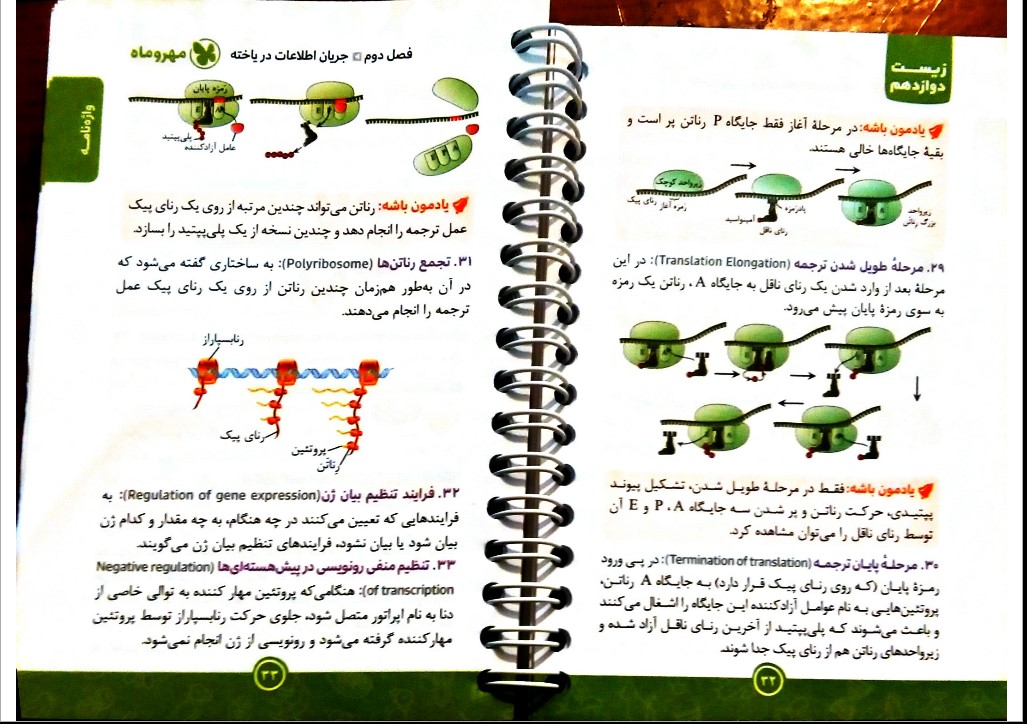 زیست
دوازدهم
یادمون باشه: در مرحلهٔ آغاز فقط جایگاه P رناتن پر است و
بقیهٔ جایگاه‌ها خالی هستند.
زیرواحد کوچک
رنای پیک
رمزه آغاز
پادرمزه
آمینواسید
رنای ناقل
زیرواحد
بزرگ رناتن
۲۹. مرحلهٔ طویل شدن ترجمه (Translation Elongation): در این
مرحلهٔ بعد از وارد شدن یک رنای ناقل به جایگاه A، رناتن یک رمزه
به سوی رمزهٔ پایان پیش می‌رود.
یادمون باشه: فقط در مرحلهٔ طویل شدن، تشکیل پیوند
پپتیدی، حرکت رناتن و پر شدن سه جایگاه P، A و E آن
توسط رنای ناقل را می‌توان مشاهده کرد.
۳۰. مرحلهٔ پایان ترجمه (Termination of translation): در پی ورود
رمزهٔ پایان (که روی رنای پیک قرار دارد) به جایگاه A رناتن،
پروتئین‌هایی به نام عوامل آزادکننده این جایگاه را اشغال می‌کنند
و باعث می‌شوند که پلی‌پپتید از آخرین رنای ناقل آزاد شده و
زیرواحدهای رناتن هم از رنای پیک جدا شوند.
۳۲
فصل دوم جریان اطلاعات در یاخته
مهروماه
واژه‌نامه
رمزه پایان
پلی‌پپتید
عامل آزادکننده
یادمون باشه: رناتن می‌تواند چندین مرتبه از روی یک رنای پیک
عمل ترجمه را انجام دهد و چندین نسخه از یک پلی‌پپتید را بسازد.
۳۱. تجمع رناتن‌ها (Polyribosome): به ساختاری گفته می‌شود که
در آن به‌طور هم‌زمان چندین رناتن از روی یک رنای پیک عمل
ترجمه را انجام می‌دهند.
رنابسپاراز
رنای پیک
پروتئین
رناتن
۳۲. فرایند تنظیم بیان ژن (Regulation of gene expression): به
فرایندهایی که تعیین می‌کنند در چه هنگام، به چه مقدار و کدام ژن
بیان شود یا بیان نشود، فرایندهای تنظیم بیان ژن می‌گویند.
۳۳. تنظیم منفی رونویسی در پیش‌هسته‌ای‌ها (Negative regulation
of transcription): هنگامی‌که پروتئین مهار کننده به توالی خاصی از
دنا به نام اپراتور متصل شود، جلوی حرکت رنابسپاراز توسط پروتئین
مهارکننده گرفته می‌شود و رونویسی از ژن انجام نمی‌شود.
۳۳